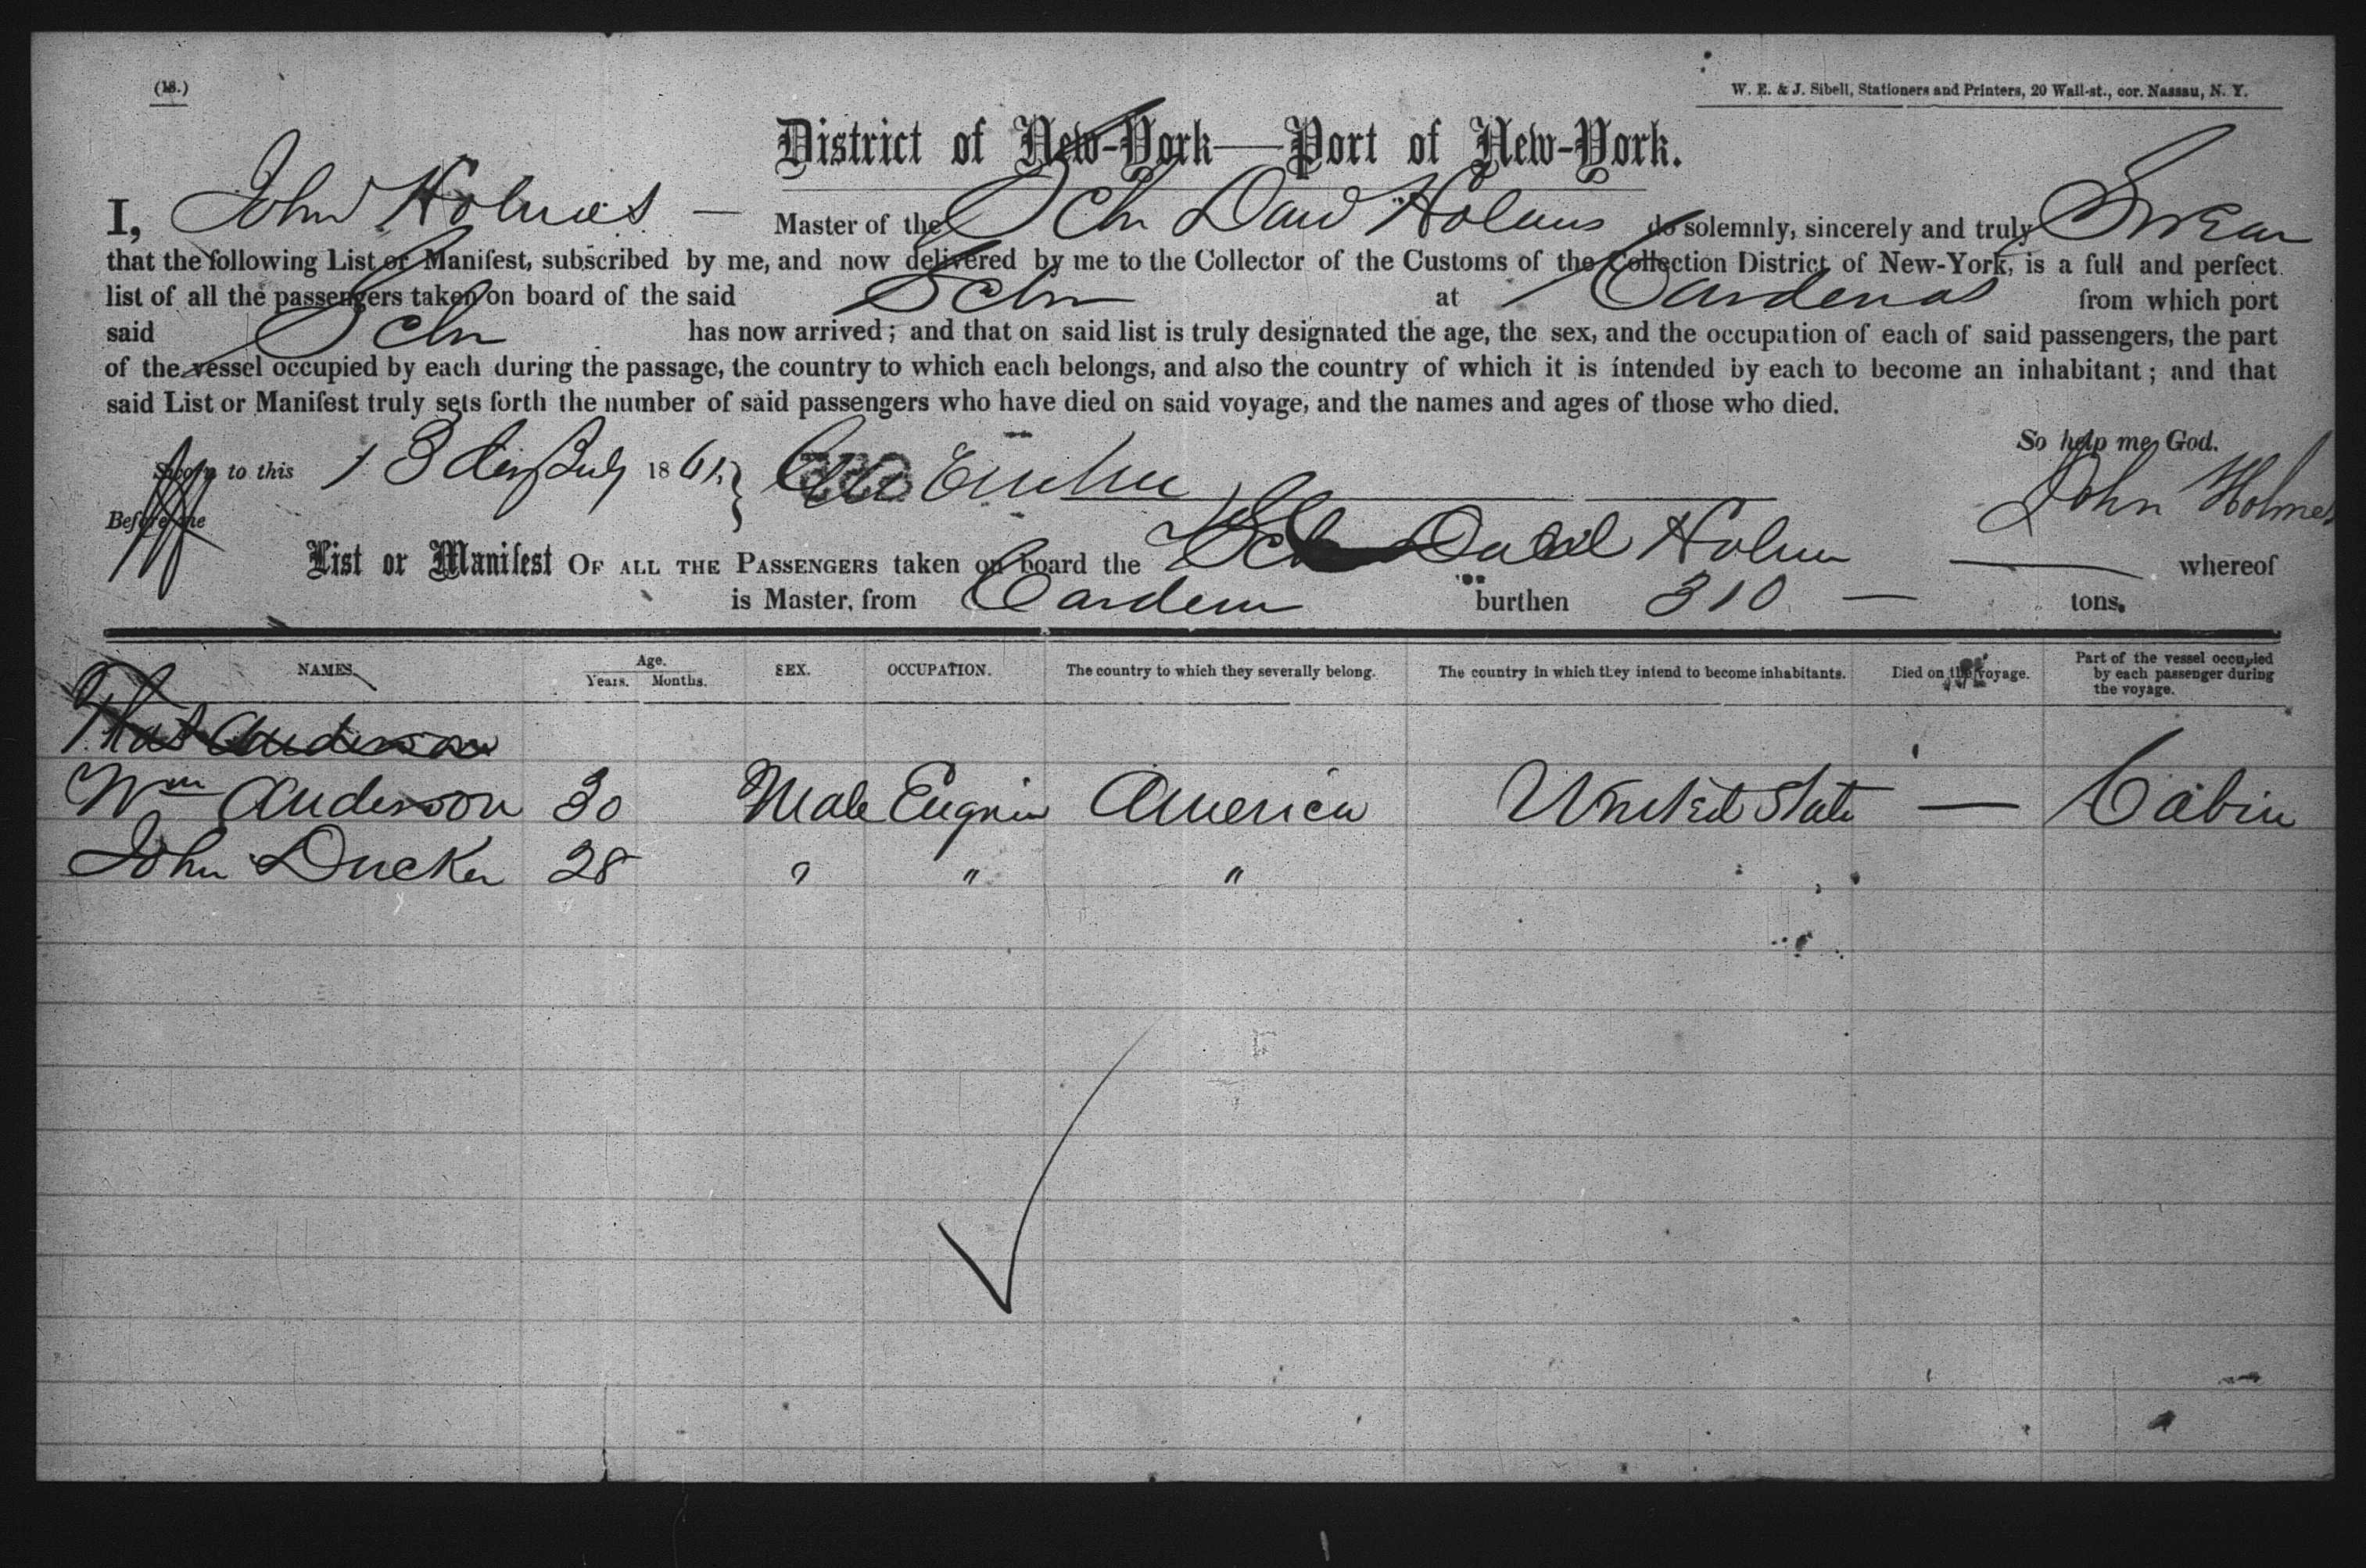 (18.)
W. E. & J. Sibell, Stationers and Printers, 20 Wall-st., cor. Nassau, N. Y.
District of New-York—Port of New-York.
I, John Holmes — Master of the Schr David Holmes do solemnly, sincerely and truly Swear
that the following List or Manifest, subscribed by me, and now delivered by me to the Collector of the Customs of the Collection District of New-York, is a full and perfect
list of all the passengers taken on board of the said Schr at Cardenas from which port
said Schr has now arrived; and that on said list is truly designated the age, the sex, and the occupation of each of said passengers, the part
of the vessel occupied by each during the passage, the country to which each belongs, and also the country of which it is intended by each to become an inhabitant; and that
said List or Manifest truly sets forth the number of said passengers who have died on said voyage, and the names and ages of those who died.
So help me God.
Sworn to this 13 day July 1861 John Holmes
Before me
List or Manifest OF ALL THE PASSENGERS taken on board the Schr David Holmes — whereof
is Master, from Carden burthen 310 — tons.
NAMES. Age. Years. Months. SEX. OCCUPATION. The country to which they severally belong. The country in which they intend to become inhabitants. Died on the voyage. Part of the vessel occupied by each passenger during the voyage.
Anderson
Wm Anderson 30 Male Engnin America United State — Cabin
John Ducker 28 " " "